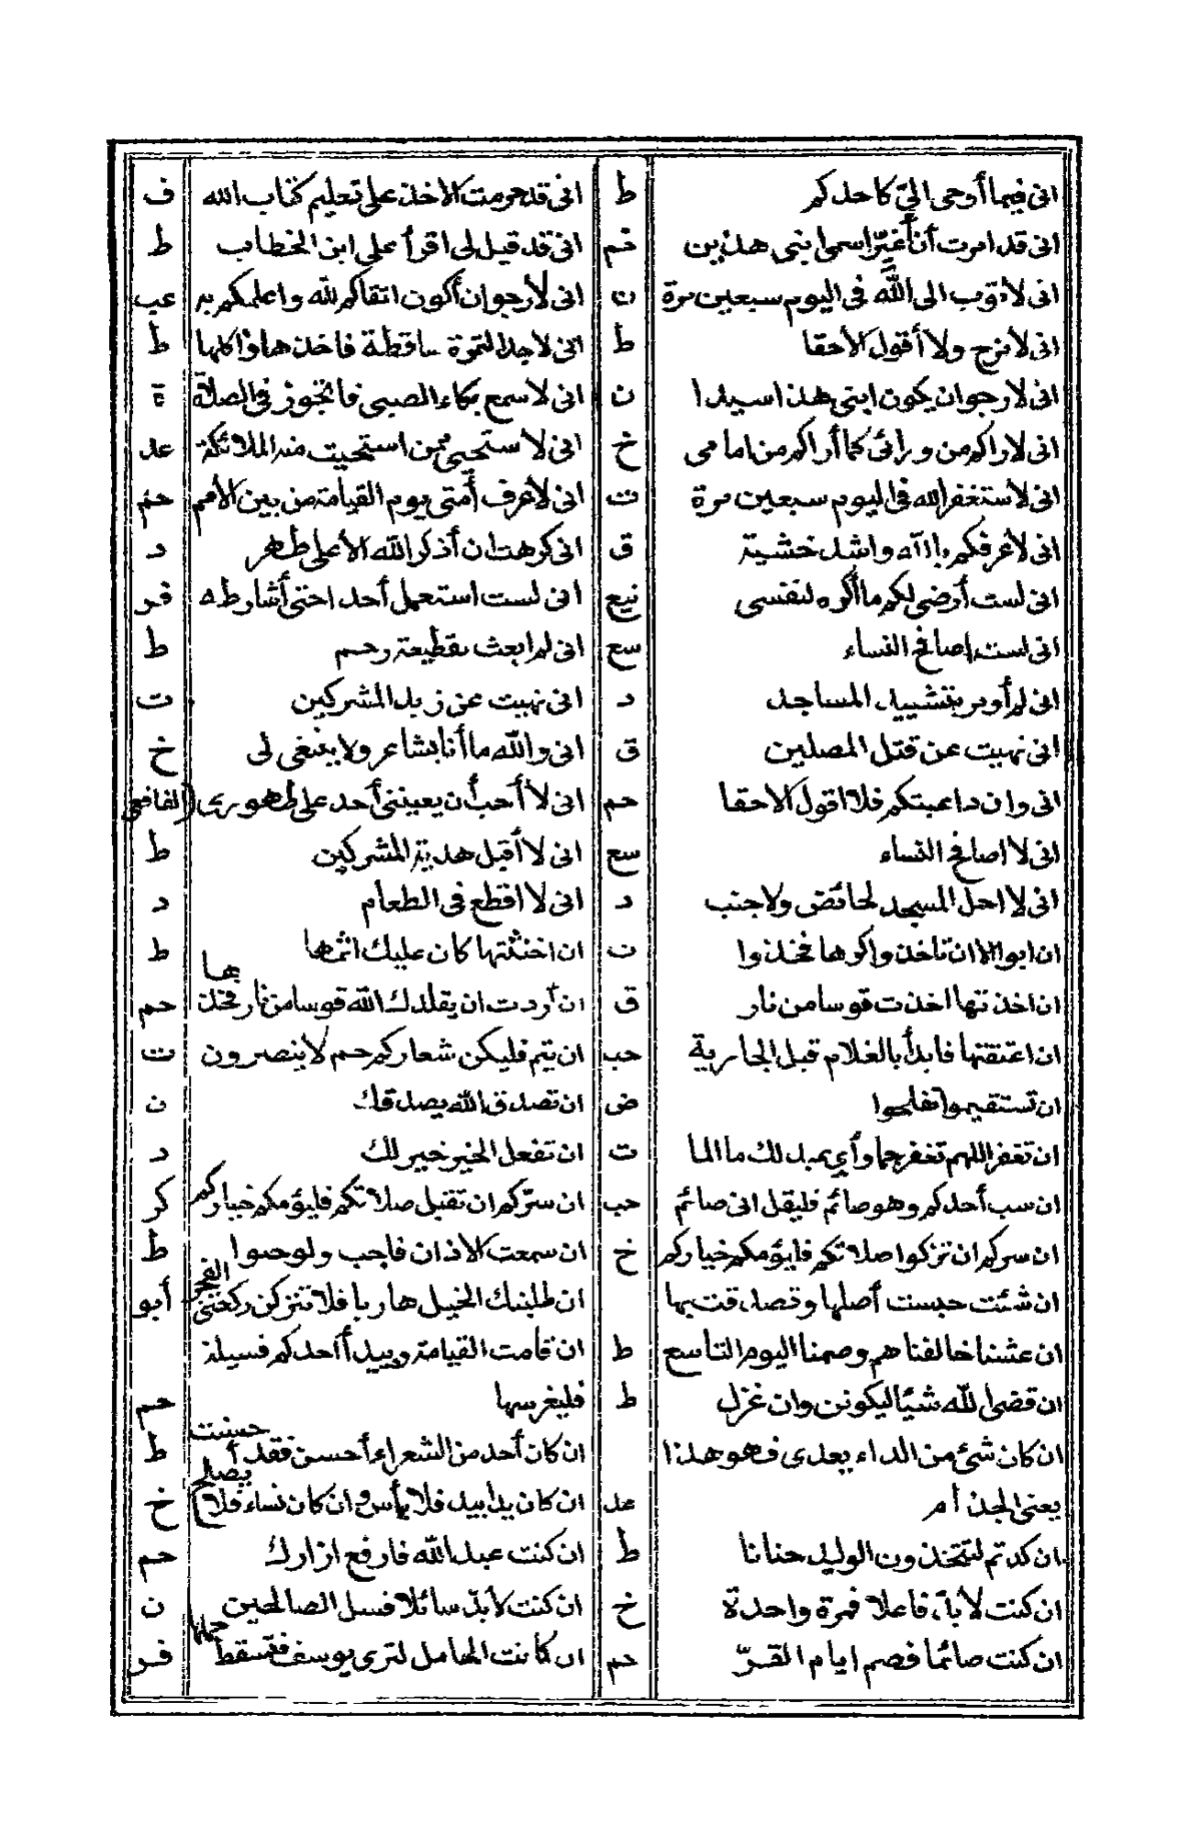 انى فيما أوحى الىّ كاحدكم ط
انى قد امرت أن أغيّر اسم ابنى هذين خم
انى لاتوب الى اللّه فى اليوم سبعين مرة ن
انى لامزح ولا أقول الاحقا ط
انى لارجو ان يكون ابنى هذا سيدا ن
انى لاراكم من ورائى كما أراكم من امامى خ
انى لاستغفر الله فى اليوم سبعين مرة ت
انى لاعرفكم بالله واشد خشية ق
انى لست أرضى لكم ما اكره لنفسى نيع
انى لست اصافح النساء سع
انى لم أومر بتشييد المساجد د
انى نهيت عن قتل المصلين ق
انى وان داعبتكم فلا اقول الاحقا حم
انى لا اصافح النساء سع
انى لا احل المسجد لحائض ولا جنب د
ان ابوا الا ان تاخذوا كرها فخذوا ت
ان اخذتها اخذت قوسا من نار ق
ان اعتقتها فابدأ بالغلام قبل الجارية حب
ان تستقيموا تفلحوا ض
ان تغفر اللهم تغفر جما وأى عبد لك ما الما ت
ان سب أحدكم وهو صائم فليقل انى صائم حب
ان سركم ان تزكوا صلاتكم فليؤمكم خياركم خ
ان شئت حبست أصلها وتصدقت بها
ان عشنا خالفناهم وصمنا اليوم التاسع ط
ان قضى للّه شيئا ليكونن وان عزل ط
ان كان شئ من الداء يعدى فهو هذا
يعنى الجذام عد
ان كدتم لتتخذون الوليد حنانا ط
ان كنت لابدّ فاعلا فمرة واحدة خ
ان كنت صائما فصم ايام الغرّ حم
انى قد حرمت الاخذ على تعليم كتاب الله ف
انى قد قيل لى اقرأ على ابن الخطاب ط
انى لأرجو ان أكون اتقاكم للّه واعلمكم به عب
انى لاجد التمرة ساقطة فاخذها فاكلها ط
انى لاسمع بكاء الصبى فاتجوز فى الصلاة ة
انى لاستحيى ممن استحيت منه الملائكة عد
انى لاعرف أمّتى يوم القيامة من بين الأمم حم
انى كرهت ان أذكر اللّه الا على طهر د
انى لست استعمل أحدا حتى أشارطه فر
انى لم ابعث بقطيعة رحم ط
انى نهيت عن زبد المشركين ت
انى واللّه ما أنا بشاعر ولا ينبغى لى خ
انى لا أحب أن يعيننى أحد على طهورى (الفافعى
انى لا أقبل هدية المشركين ط
انى لا اقطع فى الطعام د
ان اخنثتها كان عليك اثمها ط
ان أردت ان يقلدك اللّه قوسا من نار فخذ بها حم
ان بيتم فليكن شعاركم حم لا ينصرون ت
ان تصدق اللّه يصدقك ن
ان تفعل الخير خير لك د
ان سرّكم ان تقبل صلاتكم فليؤمكم خياركم كر
ان سمعت الاذان فاجب ولو حبوا ط
ان طلبتك الخيل هاربا فلا تتركن ركعتى الفجر أبو
ان قامت القيامة وبيد أحدكم فسيلة
فليغرسها حم
ان كان أحد من الشعراء أحسن فقد أحسنت ط
ان كان يدا بيد فلا بأس وان كان نساء فلا يصلح خ
ان كنت عبد اللّه فارفع ازارك حم
ان كنت لابدّ سائلا فسل الصالحين ن
ان كانت الحامل لترى يوسف فتسقط حملها فر